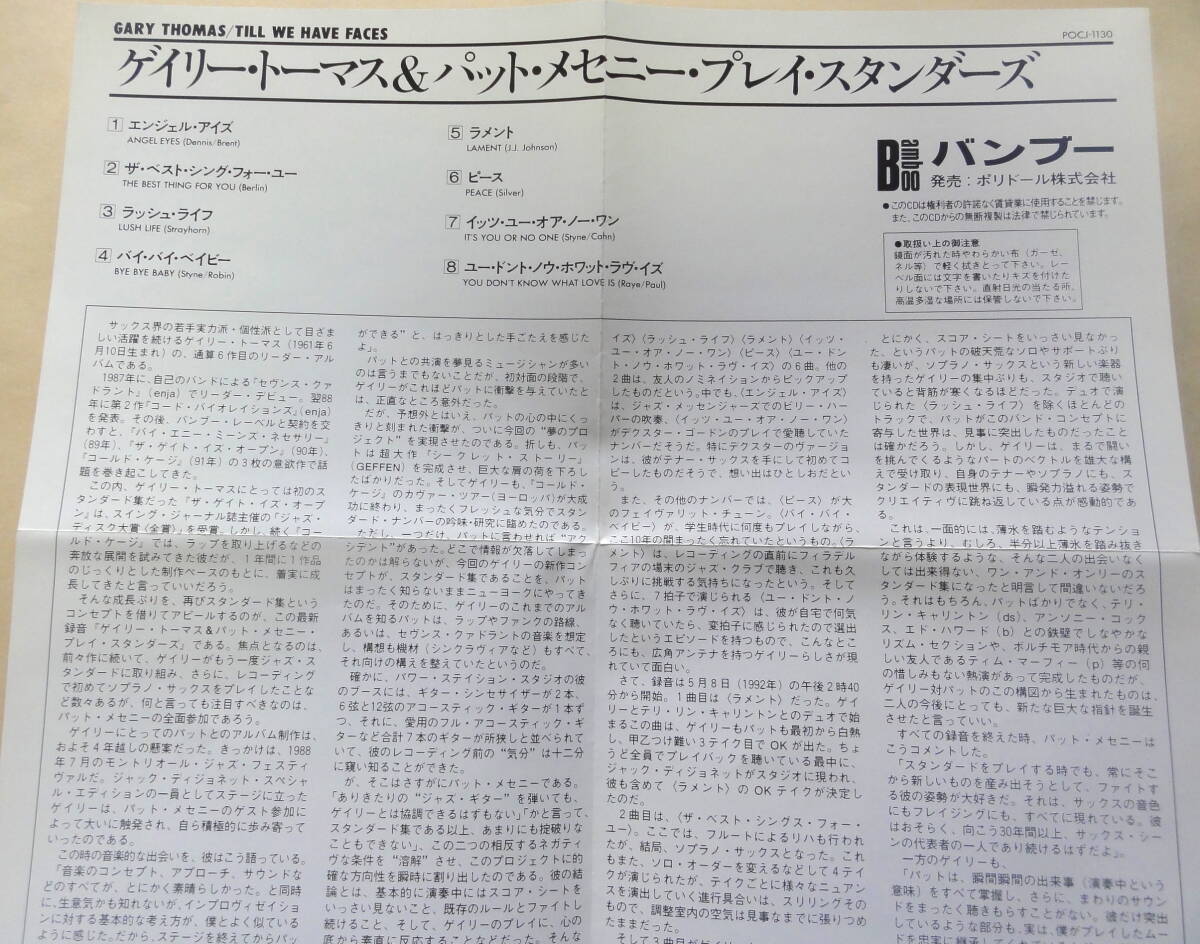 GARY THOMAS/TILL WE HAVE FACES
POCJ-1130
ゲイリー・トーマス&パット・メセニー・プレイ・スタンダーズ
1 エンジェル・アイズ
ANGEL EYES (Dennis/Brent)
2 ザ・ベスト・シング・フォー・ユー
THE BEST THING FOR YOU (Berlin)
3 ラッシュ・ライフ
LUSH LIFE (Strayhorn)
4 バイ・バイ・ベイビー
BYE BYE BABY (Styne/Robin)
5 ラメント
LAMENT (J.J. Johnson)
6 ピース
PEACE (Silver)
7 イッツ・ユー・オア・ノー・ワン
IT'S YOU OR NO ONE (Styne/Cahn)
8 ユー・ドント・ノウ・ホワット・ラヴ・イズ
YOU DON'T KNOW WHAT LOVE IS (Raye/Paul)
Bamboo バンブー
発売:ポリドール株式会社
●このCDは権利者の許諾なく賃貸業に使用することを禁じます。
また、このCDからの無断複製は法律で禁じられています。
●取扱い上の御注意
鏡面が汚れた時やわらかい布(ガーゼ、
ネル等)で軽く拭きとって下さい。レー
ベル面には文字を書いたりキズを付けた
りしないで下さい。直射日光の当たる所、
高温多湿な場所には保管しないで下さい。
サックス界の若手実力派・個性派として目ざま
しい活躍を続けるゲイリー・トーマス(1961年6
月10日生まれ)の、通算6作目のリーダー・アル
バムである。
1987年に、自己のバンドによる『セヴンス・クァ
ドラント』(enja)でリーダー・デビュー。翌88
年に第2作『コード・バイオレイションズ』(enja)
を発表。その後、バンブー・レーベルと契約を交
わすと、『バイ・エニー・ミーンズ・ネセサリー』
(89年)、『ザ・ゲイト・イズ・オープン』(90年)、
『コールド・ケージ』(91年)の3枚の意欲作で話
題を巻き起こしてきた。
この内、ゲイリー・トーマスにとっては初のス
タンダード集だった『ザ・ゲイト・イズ・オープ
ン』は、スイング・ジャーナル誌主催の「ジャズ・
ディスク大賞〈金賞〉」を受賞。しかし、続く『コー
ルド・ケージ』では、ラップを取り上げるなどの
奔放な展開を試みてきた彼だが、1年間に1作品
のじっくりとした制作ペースのもとに、着実に成
長してきたと言っていいだろう。
そんな成長ぶりを、再びスタンダード集という
コンセプトを借りてアピールするのが、この最新
録音『ゲイリー・トーマス&パット・メセニー・
プレイ・スタンダーズ』である。焦点となるのは、
前々作に続いて、ゲイリーがもう一度ジャズ・ス
タンダードに取り組み、さらに、レコーディング
で初めてソプラノ・サックスをプレイしたことな
ど数々あるが、何と言っても注目すべきなのは、
パット・メセニーの全面参加であろう。
ゲイリーにとってのパットとのアルバム制作は、
およそ4年越しの懸案だった。きっかけは、1988
年7月のモントリオール・ジャズ・フェスティ
ヴァルだ。ジャック・ディジョネット・スペシャ
ル・エディションの一員としてステージに立った
ゲイリーは、パット・メセニーのゲスト参加に
よって大いに触発され、自ら積極的に歩み寄って
いったのである。
この時の音楽的な出会いを、彼はこう語っている。
「音楽のコンセプト、アプローチ、サウンドな
どのすべてが、とにかく素晴らしかった。と同時
に、生意気かも知れないが、インプロヴィゼイション
に対する基本的な考え方が、僕とよく似ている
ように感じた。だから、ステージを終えてからパッ
ができる”と、はっきりとした手ごたえを感じた
よ」。
パットとの共演を夢見るミュージシャンが多い
のは言うまでもないことだが、初対面の段階で、
ゲイリーがこれほどパットに衝撃を与えていたと
は、正直なところ意外だった。
だが、予想外とはいえ、パットの心の中にくっ
きりと刻まれた衝撃が、ついに今回の“夢のプロ
ジェクト”を実現させたのである。折しも、パッ
トは超大作『シークレット・ストーリー』
(GEFFEN)を完成させ、巨大な肩の荷を下ろし
たばかりだった。そしてゲイリーも、『コールド・
ケージ』のカヴァー・ツアー(ヨーロッパ)が大成
功に終わり、まったくフレッシュな気分でスタン
ダード・ナンバーの吟味・研究に臨めたのである。
ただし、一つだけ、パットに言わせれば“アク
シデント”があった。どこで情報が欠落してしまっ
たのかは解らないが、今回のゲイリーの新作コン
セプトが、スタンダード集であることを、パット
はまったく知らないままニューヨークにやってき
たのだ。そのために、ゲイリーのこれまでのアル
バムを知るパットは、ラップやファンクの路線、
あるいは、セヴンス・クァドラントの音楽を想定
し、構想も機材(シンクラヴィアなど)もすべて、
それ向けの構えを整えていたというのだ。
確かに、パワー・ステイション・スタジオの彼
のブースには、ギター・シンセサイザーが2本、
6弦と12弦のアコースティック・ギターが1本ず
つ、それに、愛用のフル・アコースティック・ギ
ターなど合計7本のギターが所狭しと並べられて
いて、彼のレコーディング前の“気分”は十二分
に窺い知ることができた。
が、そこはさすがにパット・メセニーである。
「ありきたりの“ジャズ・ギター”を弾いても、
ゲイリーとは協調できるはずもない」「かと言って、
スタンダード集である以上、あまりにも掟破りな
こともできない」、この二つの相反するネガティ
ヴな条件を“溶解”させ、このプロジェクトに的
確な方向性を瞬時に割り出したのである。彼の結
論とは、基本的に演奏中にはスコア・シートを
いっさい見ないこと、既存のルールとファイトし
続けること、そして、ゲイリーのプレイに、心の
底から素直に反応することなどだった。そんな
イズ〉〈ラッシュ・ライフ〉〈ラメント〉〈イッツ・
ユー・オア・ノー・ワン〉〈ピース〉〈ユー・ドン
ト・ノウ・ホワット・ラヴ・イズ〉の6曲。他の
2曲は、友人のノミネイションからピックアップ
したものだという。中でも、〈エンジェル・アイズ〉
は、ジャズ・メッセンジャーズでのビリー・ハー
パーの吹奏、〈イッツ・ユー・オア・ノー・ワン〉
がデクスター・ゴードンのプレイで愛聴していた
ナンバーだそうだ。特にデクスターのヴァージョ
ンは、彼がテナー・サックスを手にして初めてコ
ピーしたものだそうで、想い出はひとしおだとい
う。
また、その他のナンバーでは、〈ピース〉が大
のフェイヴァリット・チューン。〈バイ・バイ・
ベイビー〉が、学生時代に何度もプレイしながら、
ここ10年の間まったく忘れていたというもの。〈ラ
メント〉は、レコーディングの直前にフィラデル
フィアの場末のジャズ・クラブで聴き、これも久
しぶりに挑戦する気持ちになったという。そして
さらに、7拍子で演じられる〈ユー・ドント・ノ
ウ・ホワット・ラヴ・イズ〉は、彼が自宅で何気
なく聴いていたら、変拍子に感じられたので選出
したというエピソードを持つもので、こんなとこ
ろにも、広角アンテナを持つゲイリーらしさが現
れていて面白い。
さて、録音は5月8日(1992年)の午後2時40
分から開始。1曲目は〈ラメント〉だった。ゲイ
リーとテリ・リン・キャリントンとのデュオで始
まるこの曲は、ゲイリーもパットも最初から白熱
し、甲乙つけ難い3テイク目でOKが出た。ちょ
うど全員でプレイバックを聴いている最中に、
ジャック・ディジョネットがスタジオに現われ、
彼も含めて〈ラメント〉のOKテイクが決定し
たのだ。
2曲目は、〈ザ・ベスト・シングス・フォー・
ユー〉。ここでは、フルートによるリハも行われ
たが、結局、ソプラノ・サックスとなった。これ
もまた、ソロ・オーダーを変えるなどして4テイ
クが演じられたが、テイクごとに様々なニュアン
スを演出していく進行具合いは、スリリングその
もので、調整室内の空気は見事なまでに張りつめ
たままだった。
そして3曲目が
とにかく、スコア・シートをいっさい見なかっ
た、というパットの破天荒なソロやサポートぶり
も凄いが、ソプラノ・サックスという新しい楽器
を持ったゲイリーの集中ぶりも、スタジオで聴い
ていると背筋が寒くなるほどだった。デュオで演
じられた〈ラッシュ・ライフ〉を除くほとんどの
トラックで、パットがこのバンド・コンセプトに
寄与した世界は、見事に突出したものだったこと
は確かだろう。しかし、ゲイリーは、まるで闘い
を挑んでくるようなパートのベクトルを雄大な構
えで受け取り、自身のテナーやソプラノにも、ス
タンダードの表現世界にも、瞬発力溢れる姿勢で
クリエイティヴに跳ね返している点が感動的であ
る。
これは、一面的には、薄氷を踏むようなテンショ
ンと言うより、むしろ、半分以上薄氷を踏み抜き
ながら体験するような、そんな二人の出会いなく
しては出来得ない、ワン・アンド・オンリーのス
タンダード集になったと明言して間違いないだろ
う。それはもちろん、パットばかりでなく、テリ・
リン・キャリントン(ds)、アンソニー・コック
ス、エド・ハワード(b)との鉄壁でしなやかな
リズム・セクションや、ボルチモア時代からの親
しい友人であるティム・マーフィー(p)等の何
の惜しみもない熱演があって完成したものだが、
ゲイリー対パットのこの構図から生まれたものは、
二人の今後にとっても、新たな巨大な指針を誕生
させたと言っていい。
すべての録音を終えた時、パット・メセニーは
こうコメントした。
「スタンダードをプレイする時でも、常にそこ
から新しいものを産み出そうとして、ファイトす
る彼の姿勢が大好きだ。それは、サックスの音色
にもフレイジングにも、すべてに現れている。彼
はおそらく、向こう30年間以上、サックス・シー
ンの代表者の一人であり続けるはずだよ」。
一方のゲイリーも、
「パットは、瞬間瞬間の出来事(演奏中という
意味)をすべて掌握し、さらに、まわりのサウン
ドをまったく聴きもらすことがない。彼だけ突出
しているような部分も、実は、僕がプレイしたムー
ドを忠実に継承して